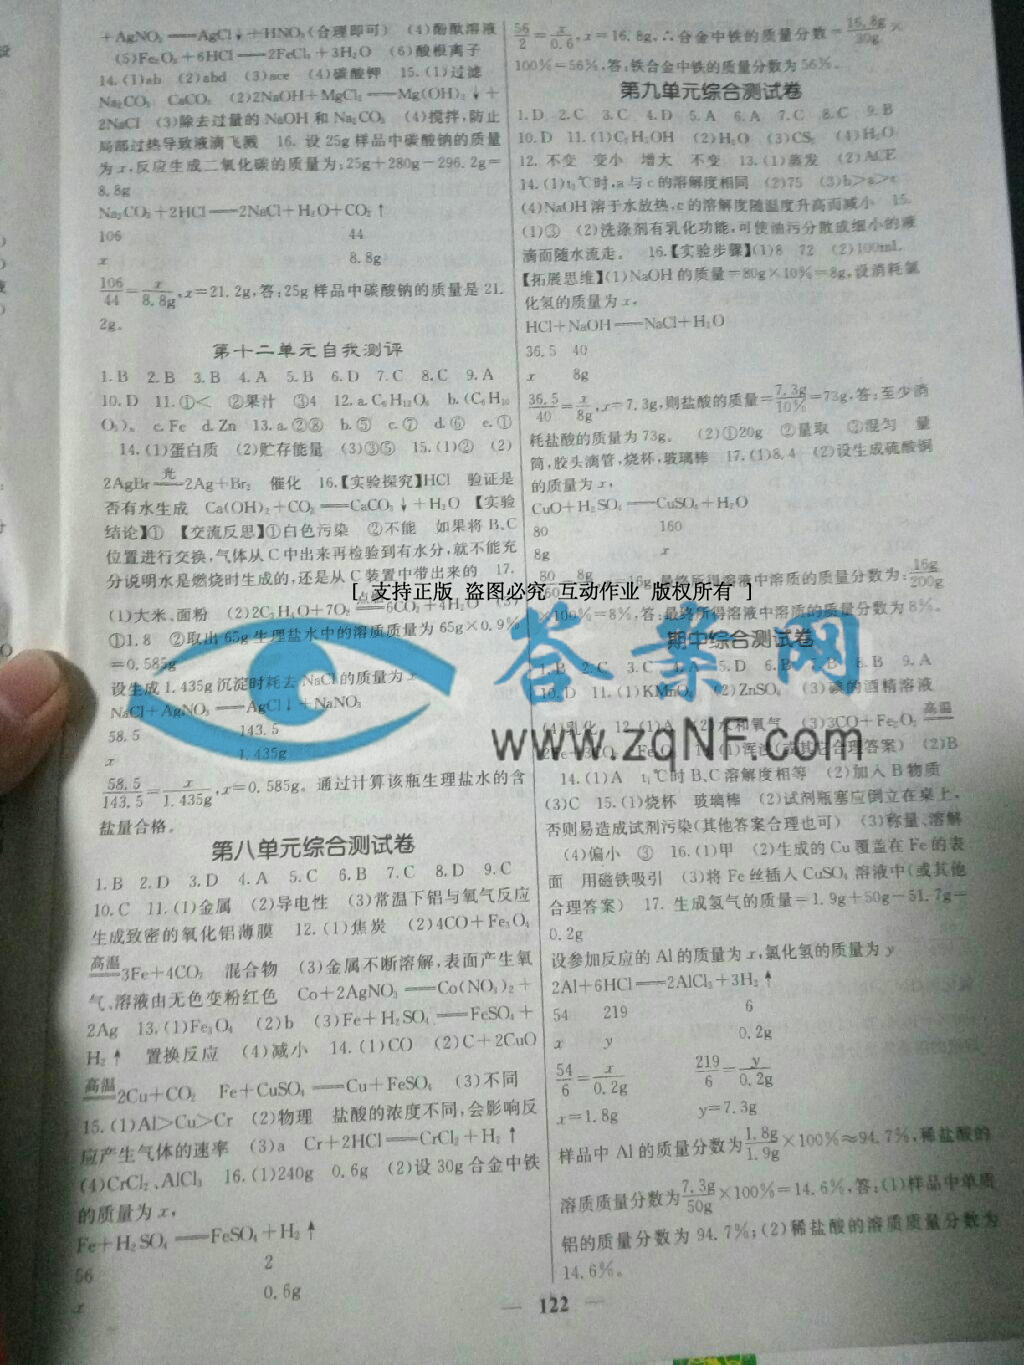 +AgNO₃══AgCl↓+HNO₃(合理即可) (4)酚酞溶液
(5)Fe₂O₃+6HCl══2FeCl₃+3H₂O (6)酸根离子
14.(1)ab (2)abd (3)ace (4)碳酸钾 15.(1)过滤
Na₂CO₃ CaCO₃ (2)2NaOH+MgCl₂══Mg(OH)₂↓+
2NaCl (3)除去过量的NaOH和Na₂CO₃ (4)搅拌,防止
局部过热导致液滴飞溅 16. 设25g样品中碳酸钠的质量
为x,反应生成二氧化碳的质量为:25g+280g-296.2g=
8.8g
Na₂CO₃+2HCl══2NaCl+H₂O+CO₂↑
106 44
x 8.8g
106/44=x/8.8g,x=21.2g,答:25g样品中碳酸钠的质量是21.
2g。
第十二单元自我测评
1.B 2.B 3.B 4.A 5.B 6.D 7.C 8.C 9.A
10.D 11.①< ②果汁 ③4 12.a.C₆H₁₂O₆ b.(C₆H₁₀
O₅)ₙ c.Fe d.Zn 13.a.②⑧ b.⑤ c.⑦ d.⑥ e.①
14.(1)蛋白质 (2)贮存能量 (3)③⑤ 15.(1)② (2)
2AgBr═光═2Ag+Br₂ 催化 16.【实验探究】HCl 验证是
否有水生成 Ca(OH)₂+CO₂══CaCO₃↓+H₂O 【实验
结论】① 【交流反思】①白色污染 ②不能 如果将B、C
位置进行交换,气体从C中出来再检验到有水分,就不能充
分说明水是燃烧时生成的,还是从C装置中带出来的 17.
(1)大米、面粉
①1.8 ②取出65g生理盐水中的溶质质量为65g×0.9%
=0.585g
设生成1.435g沉淀时耗去NaCl的质量为x
NaCl+AgNO₃══AgCl↓+NaNO₃
58.5 143.5
x 1.435g
58.5/143.5=x/1.435g,x=0.585g。通过计算该瓶生理盐水的含
盐量合格。
第八单元综合测试卷
1.B 2.D 3.D 4.A 5.C 6.B 7.C 8.D 9.C
10.C 11.(1)金属 (2)导电性 (3)常温下铝与氧气反应
生成致密的氧化铝薄膜 12.(1)焦炭 (2)4CO+Fe₃O₄
═高温═3Fe+4CO₂ 混合物 (3)金属不断溶解,表面产生氧
气、溶液由无色变粉红色 Co+2AgNO₃══Co(NO₃)₂+
2Ag 13.(1)Fe₃O₄ (2)b (3)Fe+H₂SO₄══FeSO₄+
H₂↑ 置换反应 (4)减小 14.(1)CO (2)C+2CuO
═高温═2Cu+CO₂ Fe+CuSO₄══Cu+FeSO₄ (3)不同
15.(1)Al>Cu>Cr (2)物理 盐酸的浓度不同,会影响反
应产生气体的速率 (3)a Cr+2HCl══CrCl₂+H₂↑
(4)CrCl₂、AlCl₃ 16.(1)240g 0.6g (2)设30g合金中铁
的质量为x,
Fe+H₂SO₄══FeSO₄+H₂↑
56 2
x 0.6g
56/2=x/0.6,x=16.8g,∴合金中铁的质量分数=16.8g/30g×
100%=56%,答:铁合金中铁的质量分数为56%。
第九单元综合测试卷
1.D 2.C 3.C 4.D 5.A 6.A 7.C 8.C 9.B
10.D 11.(1)C₂H₅OH (2)H₂O (3)CS₂ (4)H₂O
12. 不变 变小 增大 不变 13.(1)蒸发 (2)ACE
14.(1)t₂℃时,a与c的溶解度相同 (2)75 (3)b>a>c
(4)NaOH溶于水放热,c的溶解度随温度升高而减小 15.
(1)③ (2)洗涤剂有乳化功能,可使油污分散成细小的液
滴而随水流走。 16.【实验步骤】(1)8 72 (2)100mL
【拓展思维】(1)NaOH的质量=80g×10%=8g,设消耗氯
化氢的质量为x,
HCl+NaOH══NaCl+H₂O
36.5 40
x 8g
36.5/40=x/8g,x=7.3g,则盐酸的质量=7.3g/10%=73g,答:至少消
耗盐酸的质量为73g。 (2)①20g ②量取 ③混匀 量
筒,胶头滴管,烧杯,玻璃棒 17.(1)8.4 (2)设生成硫酸铜
的质量为x,
CuO+H₂SO₄══CuSO₄+H₂O
80 160
8g x
最终所得溶液中溶质的质量分数为:16g/200g
×100%=8%,答:最终所得溶液中溶质的质量分数为8%。
[ 支持正版 盗图必究 互动作业 版权所有 ]
答案网
www.zqNF.com
期中综合测试卷
1.B 2.C 3.C 4.A 5.D 6.B 8.B 9.A
10.D 11.(1)KMnO₄ (2)ZnSO₄ (3)碘的酒精溶液
(4)乳化 12.(1)A (2)水和氧气 (3)3CO+Fe₂O₃═高温═
(或其它合理答案) (2)B
14.(1)A t₁℃时B、C溶解度相等 (2)加入B物质
(3)C 15.(1)烧杯 玻璃棒 (2)试剂瓶塞应倒立在桌上,
否则易造成试剂污染(其他答案合理也可) (3)称量、溶解
(4)偏小 ③ 16.(1)甲 (2)生成的Cu覆盖在Fe的表
面 用磁铁吸引 (3)将Fe丝插入CuSO₄溶液中(或其他
合理答案) 17. 生成氢气的质量=1.9g+50g-51.7g=
0.2g
设参加反应的Al的质量为x,氯化氢的质量为y
2Al+6HCl══2AlCl₃+3H₂↑
54 219 6
x y 0.2g
54/6=x/0.2g 219/6=y/0.2g
x=1.8g y=7.3g
样品中Al的质量分数为1.8g/1.9g×100%≈94.7%,稀盐酸的
溶质质量分数为7.3g/50g×100%=14.6%,答:(1)样品中单质
铝的质量分数为94.7%;(2)稀盐酸的溶质质量分数为
14.6%。
— 122 —